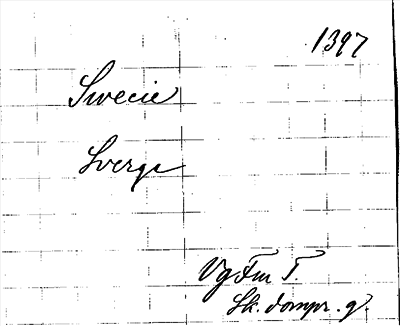 1397
Swecie
Sverge
Vg Fm T.
Sk. dompr. g.